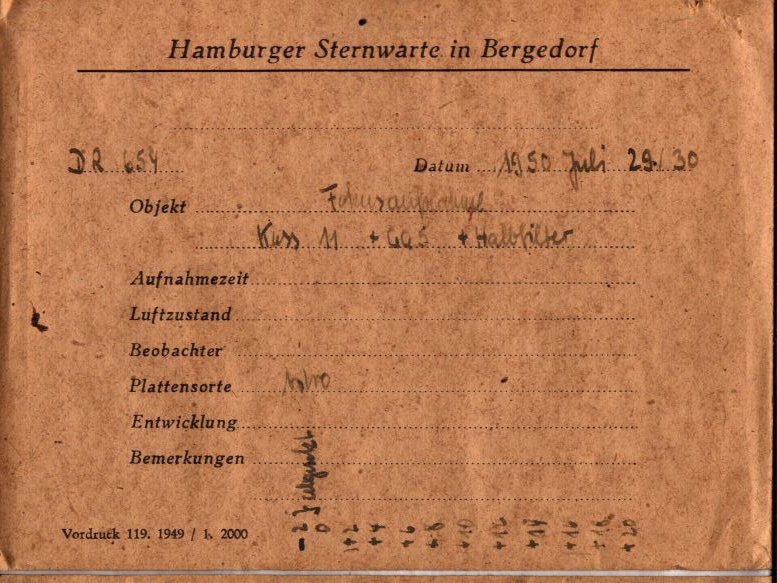 Hamburger Sternwarte in Bergedorf
DR 654 Datum 1950 Juli 29./30
Objekt Fokusaufnahme
Kass 11 + GG5 + Halbfilter
Aufnahmezeit
Luftzustand
Beobachter
Plattensorte Astro
Entwicklung
Bemerkungen
-2 0 +2 +4 +6 +8 +10 +12 +14 +16 +18 +20
Vordruck 119. 1949 / 1. 2000